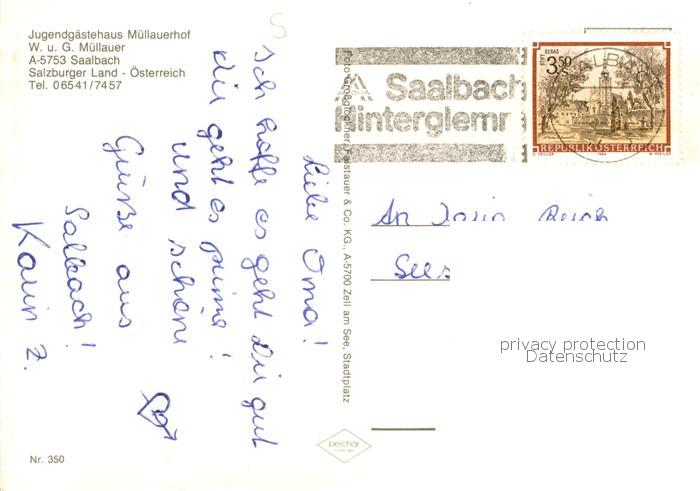 Jugendgästehaus Müllauerhof
W. u. G. Müllauer
A-5753 Saalbach
Salzburger Land - Österreich
Tel. 06541/7457
Liebe Oma!
Ich hoffe es geht Dir gut
Mir geht es prima!
und schöne
Grüße aus
Salbach!
Karin Z.
Nr. 350
Foto Großglockner, Faistauer & Co. KG., A-5700 Zell am See, Stadtplatz
Saalbach
Hinterglemm
STIFT GERAS
3.50
S
REPUBLIK ÖSTERREICH
An
privacy protection
Datenschutz